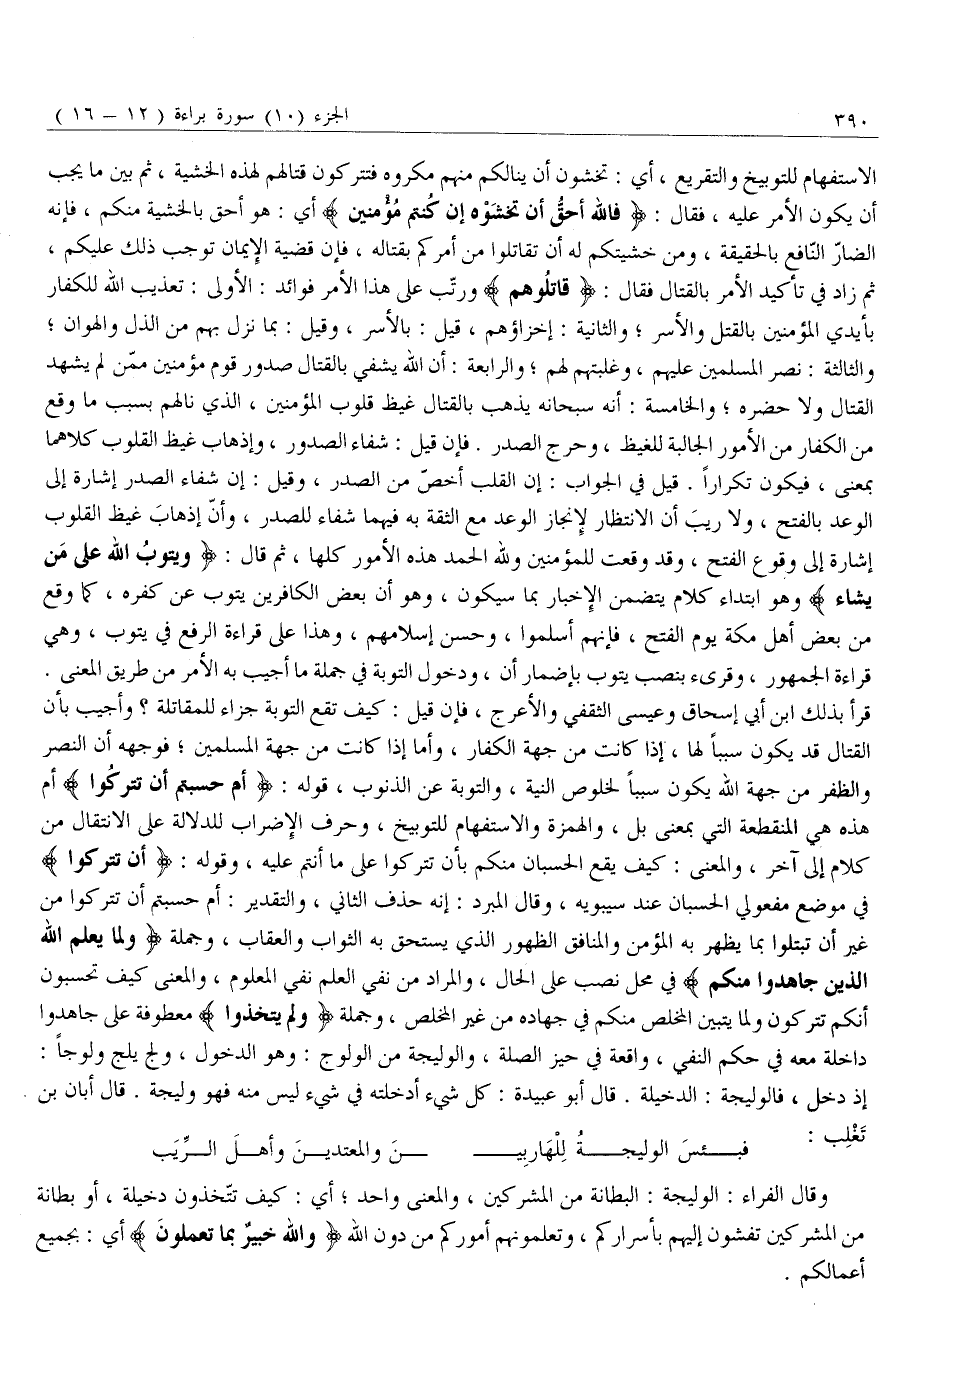 ٣٩٠ الجزء (١٠) سورة براءة ( ١٢ – ١٦ )
الاستفهام للتوبيخ والتقريع ، أي : تخشون أن ينالكم منهم مكروه فتتركون قتالهم لهذه الخشية ، ثم بين ما يجب
أن يكون الأمر عليه ، فقال : ﴿ فالله أحقُّ أن تخشَوْه إن كُنتم مُؤْمنين ﴾ أي : هو أحق بالخشية منكم ، فإنه
الضارّ النّافع بالحقيقة ، ومن خشيتكم له أن تقاتلوا من أمركم بقتاله ، فإن قضية الإيمان توجب ذلك عليكم ،
ثم زاد في تأكيد الأمر بالقتال فقال : ﴿ قاتلُوهم ﴾ ورتّب على هذا الأمر فوائد : الأولى : تعذيب الله للكفار
بأيدي المؤمنين بالقتل والأسر ؛ والثانية : إخزاؤهم ، قيل : بالأسر ، وقيل : بما نزل بهم من الذل والهوان ؛
والثالثة : نصر المسلمين عليهم ، وغلبتهم لهم ؛ والرابعة : أن الله يشفي بالقتال صدور قوم مؤمنين ممّن لم يشهد
القتال ولا حضره ؛ والخامسة : أنه سبحانه يذهب بالقتال غيظ قلوب المؤمنين ، الذي نالهم بسبب ما وقع
من الكفار من الأمور الجالبة للغيظ ، وحرج الصدر . فإن قيل : شفاء الصدور ، وإذهاب غيظ القلوب كلاهما
بمعنى ، فيكون تكراراً . قيل في الجواب : إن القلب أخصّ من الصدر ، وقيل : إن شفاء الصدر إشارة إلى
الوعد بالفتح ، ولا ريبَ أن الانتظار لإنجاز الوعد مع الثقة به فيهما شفاء للصدر ، وأنّ إذهابَ غيظ القلوب
إشارة إلى وقوع الفتح ، وقد وقعت للمؤمنين ولله الحمد هذه الأمور كلها ، ثم قال : ﴿ ويتوبُ الله على مَن
يشاء ﴾ وهو ابتداء كلام يتضمن الإخبار بما سيكون ، وهو أن بعض الكافرين يتوب عن كفره ، كما وقع
من بعض أهل مكة يوم الفتح ، فإنهم أسلموا ، وحسن إسلامهم ، وهذا على قراءة الرفع في يتوب ، وهي
قراءة الجمهور ، وقرىء بنصب يتوب بإضمار أن ، ودخول التوبة في جملة ما أجيب به الأمر من طريق المعنى .
قرأ بذلك ابن أبي إسحاق وعيسى الثقفي والأعرج ، فإن قيل : كيف تقع التوبة جزاء للمقاتلة ؟ وأجيب بأن
القتال قد يكون سبباً لها ، إذا كانت من جهة الكفار ، وأما إذا كانت من جهة المسلمين ؛ فوجهه أن النصر
والظفر من جهة الله يكون سبباً لخلوص النية ، والتوبة عن الذنوب ، قوله : ﴿ أم حسبتم أن تتركُوا ﴾ أم
هذه هي المنقطعة التي بمعنى بل ، والهمزة والاستفهام للتوبيخ ، وحرف الإضراب للدلالة على الانتقال من
كلام إلى آخر ، والمعنى : كيف يقع الحسبان منكم بأن تتركوا على ما أنتم عليه ، وقوله : ﴿ أن تتركوا ﴾
في موضع مفعولي الحسبان عند سيبويه ، وقال المبرد : إنه حذف الثاني ، والتقدير : أم حسبتم أن تتركوا من
غير أن تبتلوا بما يظهر به المؤمن والمنافق الظهور الذي يستحق به الثواب والعقاب ، وجملة ﴿ ولما يعلم الله
الذين جاهدوا منكم ﴾ في محل نصب على الحال ، والمراد من نفي العلم نفي المعلوم ، والمعنى كيف تحسبون
أنكم تتركون ولما يتبين المخلص منكم في جهاده من غير المخلص ، وجملة ﴿ ولم يتخذوا ﴾ معطوفة على جاهدوا
داخلة معه في حكم النفي ، واقعة في حيز الصلة ، والوليجة من الولوج : وهو الدخول ، ولج يلج ولوجاً :
إذ دخل ، فالوليجة : الدخيلة . قال أبو عبيدة : كل شيء أدخلته في شيء ليس منه فهو وليجة . قال أبان بن
تَغْلِب :
فبــئسَ الوليجــةُ لِلْهَاربيــ ــنَ والمعتديــنَ وأهــلَ الــرِّيَب
وقال الفراء : الوليجة : البطانة من المشركين ، والمعنى واحد ؛ أي : كيف تتّخذون دخيلة ، أو بطانة
من المشركين تفشون إليهم بأسراركم ، وتعلمونهم أموركم من دون الله ﴿ والله خبيرٌ بما تعملونَ ﴾ أي : بجميع
أعمالكم .